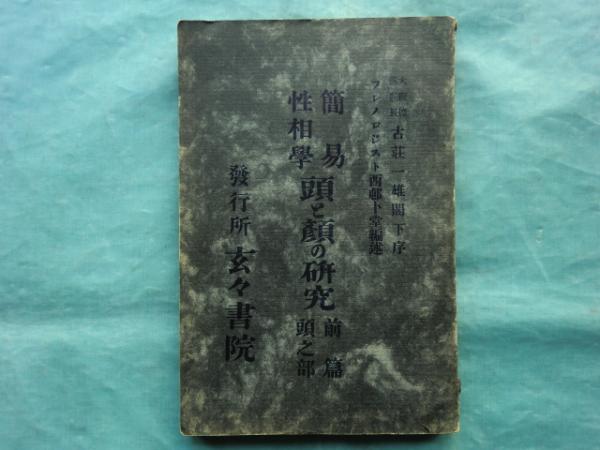 古荘一雄閣下序
フレノロジスト西邨卜堂編述
簡易
性相學
頭と顔の研究
前篇
頭之部
發行所 玄々書院